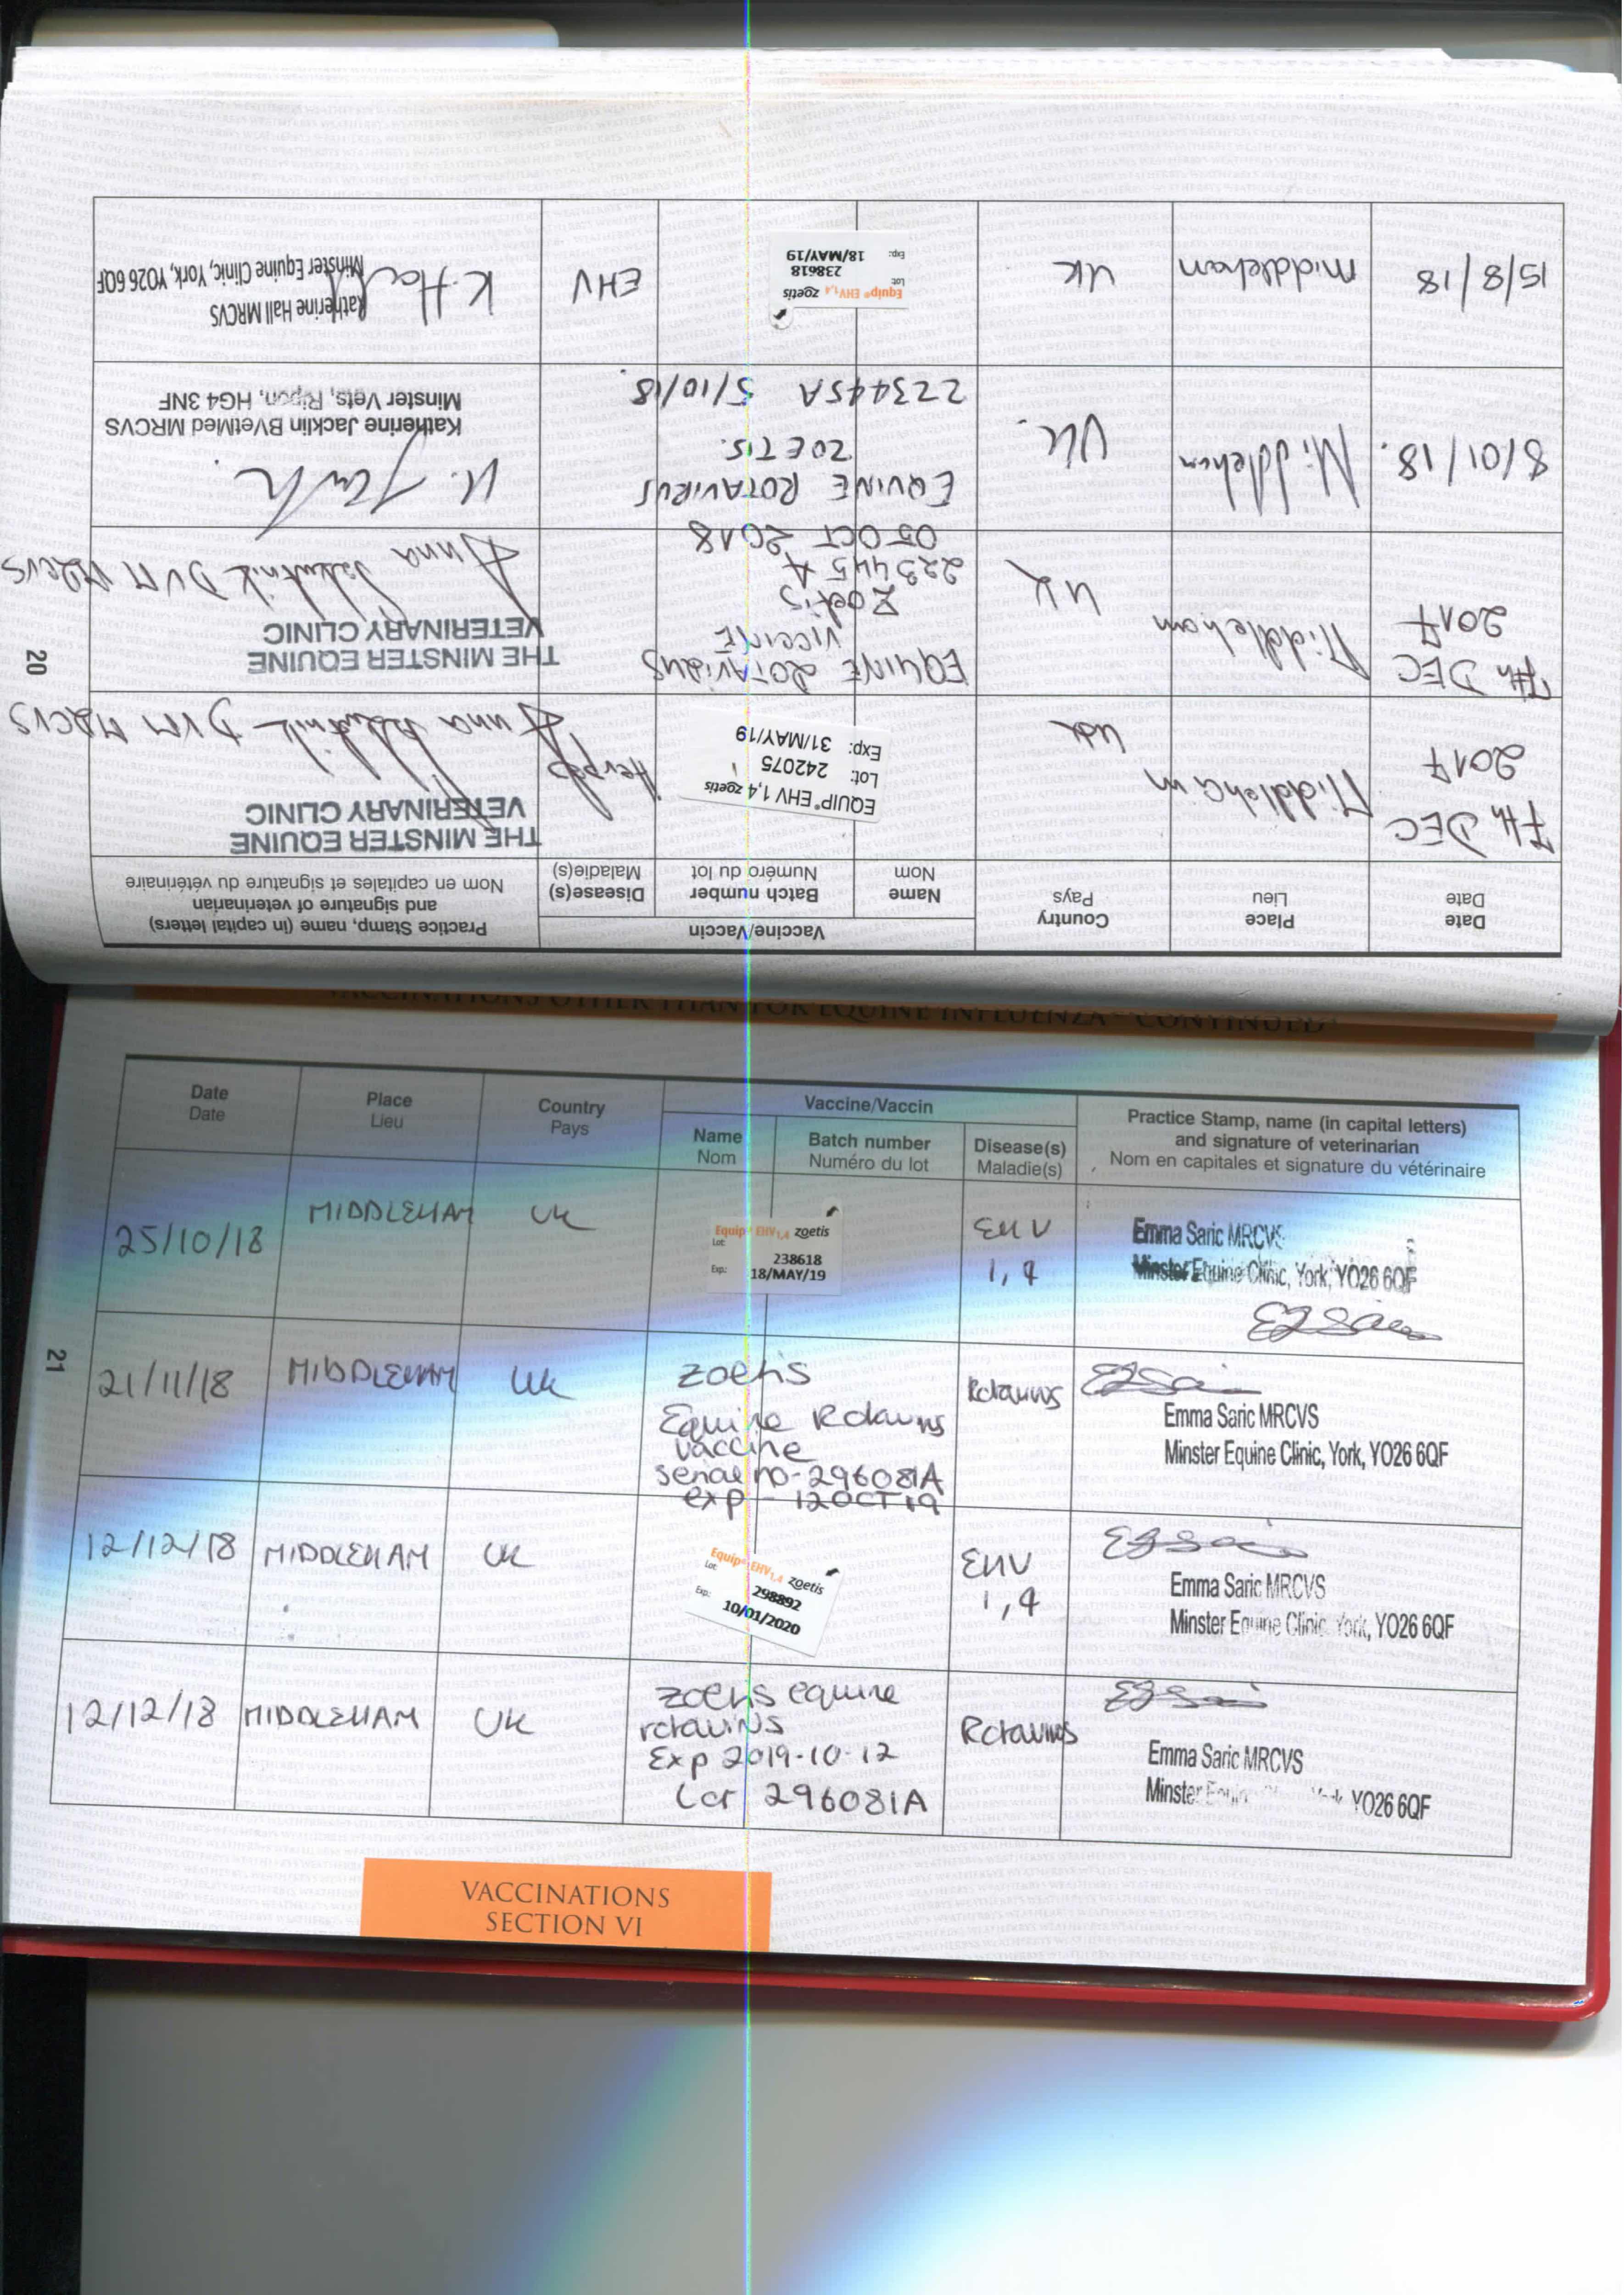 Date
Date
Place
Lieu
Country
Pays
Vaccine/Vaccin
Name
Nom
Batch number
Numéro du lot
Disease(s)
Maladie(s)
Practice Stamp, name (in capital letters)
and signature of veterinarian
Nom en capitales et signature du vétérinaire
7th DEC
2017
Middleham
UK
EQUIP® EHV 1,4 zoetis
Lot: 242075
Exp: 31/MAY/19
Herpes
THE MINSTER EQUINE
VETERINARY CLINIC
Anna DVM MRCVS
7th DEC
2017
Middleham
UK
EQUINE ROTAVIRUS
VICCINE
Zoetis
223445 A
05 OCT 2018
THE MINSTER EQUINE
VETERINARY CLINIC
Anna DVM MRCVS
8/01/18.
Middleham
UK.
EQUINE ROTAVIRUS
ZOETIS.
223445A 5/10/18.
Katherine Jacklin BVetMed MRCVS
Minster Vets, Ripon, HG4 3NF
15/8/18
Middleham
UK
Equip® EHV1,4 zoetis
Lot: 238618
Exp: 18/MAY/19
EHV
K. Hall
Katherine Hall MRCVS
Minster Equine Clinic, York, YO26 6QF
20
VACCINATIONS OTHER THAN FOR EQUINE INFLUENZA - CONTINUED
Date
Date
Place
Lieu
Country
Pays
Vaccine/Vaccin
Name
Nom
Batch number
Numéro du lot
Disease(s)
Maladie(s)
Practice Stamp, name (in capital letters)
and signature of veterinarian
Nom en capitales et signature du vétérinaire
25/10/18
MIDDLEHAM
UK
Equip® EHV1,4 zoetis
Lot: 238618
Exp: 18/MAY/19
EHV
1,4
Emma Saric MRCVS
Minster Equine Clinic, York, YO26 6QF
21/11/18
MIDDLEHAM
UK
Zoetis
Equine Rotavirus
vaccine
serial no-296081A
exp - 12OCT19
Rotavirus
Emma Saric MRCVS
Minster Equine Clinic, York, YO26 6QF
12/12/18
MIDDLEHAM
UK
Equip® EHV1,4 zoetis
Lot: 298892
Exp: 10/01/2020
EHV
1,4
Emma Saric MRCVS
Minster Equine Clinic, York, YO26 6QF
12/12/18
MIDDLEHAM
UK
Zoetis equine
rotavirus
Exp 2019-10-12
Lot 296081A
Rotavirus
Emma Saric MRCVS
Minster Equine York YO26 6QF
21
VACCINATIONS
SECTION VI